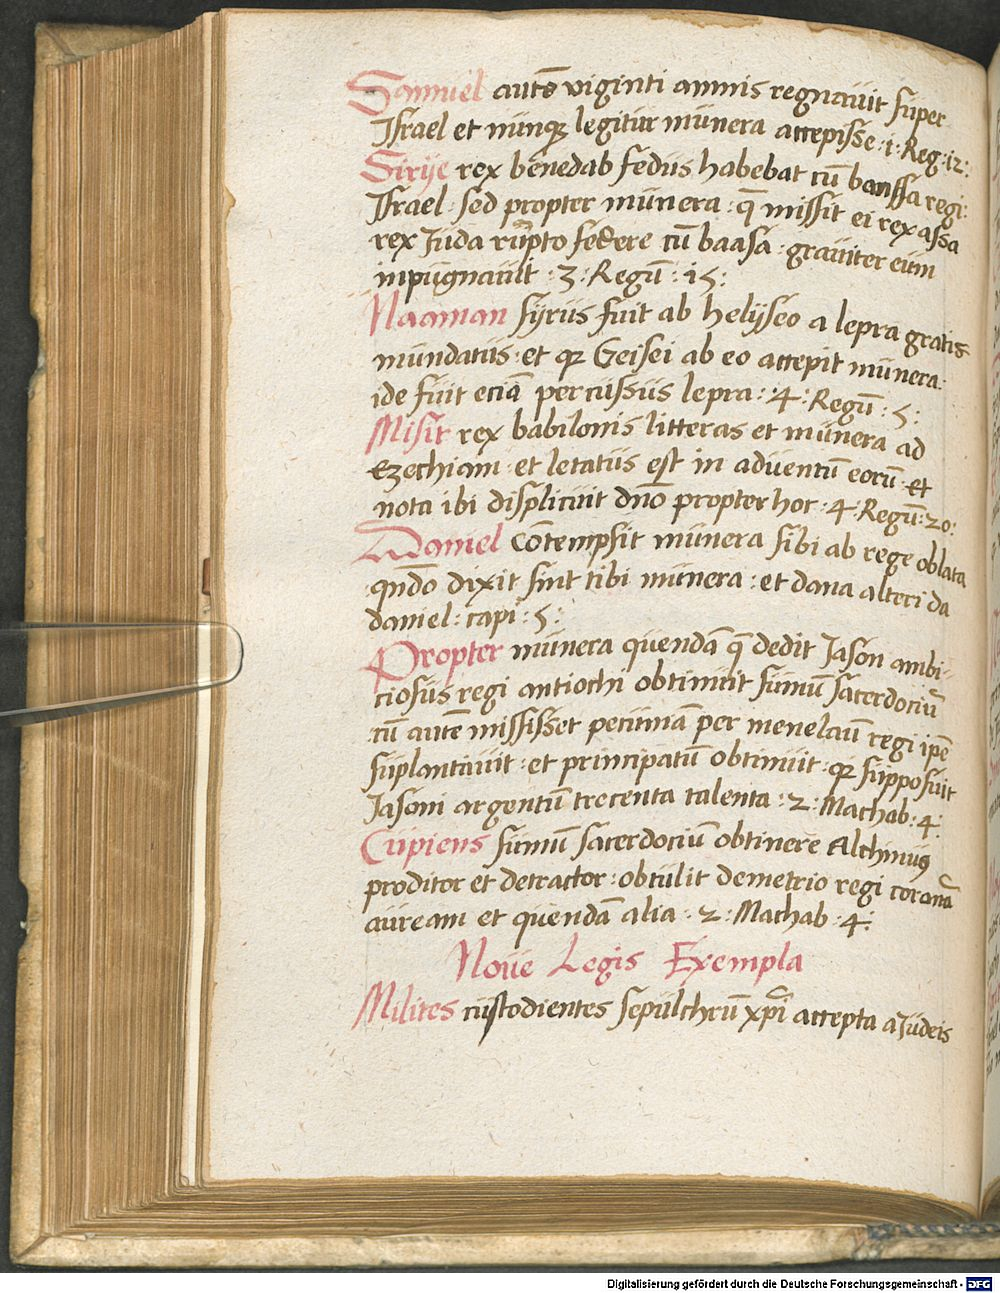 Samuel autē viginti annis regnauit super
Israel et nunqȝ legitur munera accepisse · 1 · Reg · 12 :
Sirije rex benedab fedus habebat cū baassa regi
Israel · sed propter munera · q̄ missit ei rex assa
rex Juda rupto federe cū baasa · grauiter eum
inpugnauit · 3 · Regū · 15 :
Naaman syrus fuit ab helyseo a lepra gratis
mundatus · et qȝ Geisei ab eo accepit munera ·
ide fuit eciā percussus lepra : 4 · Regū : 5 :
Misit rex babilonis litteras et munera ad
Ezechiam · et letatus est in aduentū eorū · et
nota ibi displicuit dn̄o propter hoc · 4 · Regū : 20 :
Daniel cōtempsit munera sibi ab rege oblata
qn̄do dixit sint tibi munera · et dona alteri da
daniel : capi : 5 :
Propter munera quendā q̄ dedit Jason ambi-
ciosus regi antiochi obtinuit sumū sacerdociū
cū autē mississet pecuniā per menelaū regi ipē
suplantauit · et principatū obtinuit · qȝ supposuit
Jasoni argentū trecenta talenta : 2 : Machab : 4 :
Cupiens sumū sacerdociū obtinere Alchimus
proditor et detractor : obtulit demetrio regi coronā
auream et quendā alia : 2 : Machab · 4 :
Noue Legis Exempla
Milites custodientes sepulchrū xp̄i accepta a Judeis
Digitalisierung gefördert durch die Deutsche Forschungsgemeinschaft - DFG